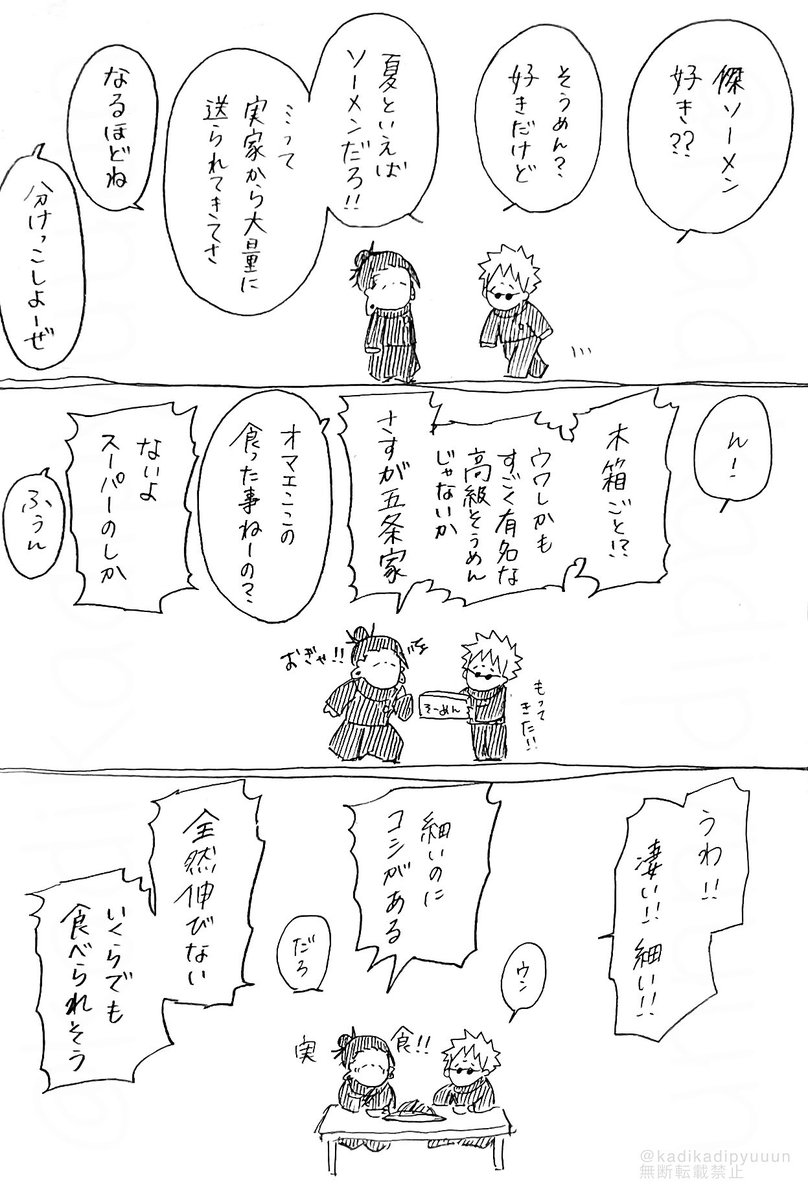 傑ソーメン
好き??
そうめん?
好きだけど
夏といえば
ソーメンだろ!!
…って
実家から大量に
送られてきてさ
なるほどね
分けっこしよーぜ
ん!
木箱ごと!?
ウワしかも
すごく有名な
高級そうめん
じゃないか
さすが五条家
オマエここの
食った事ねーの?
ないよ
スーパーのしか
ふぅん
もって
きた!!
そーめん
おぎゃ!!
うわ!!
凄い!! 細い!!
ウン
細いのに
コシがある
だろ
全然伸びない
いくらでも
食べられそう
実食!!
@kadikadipyuuun
無断転載禁止